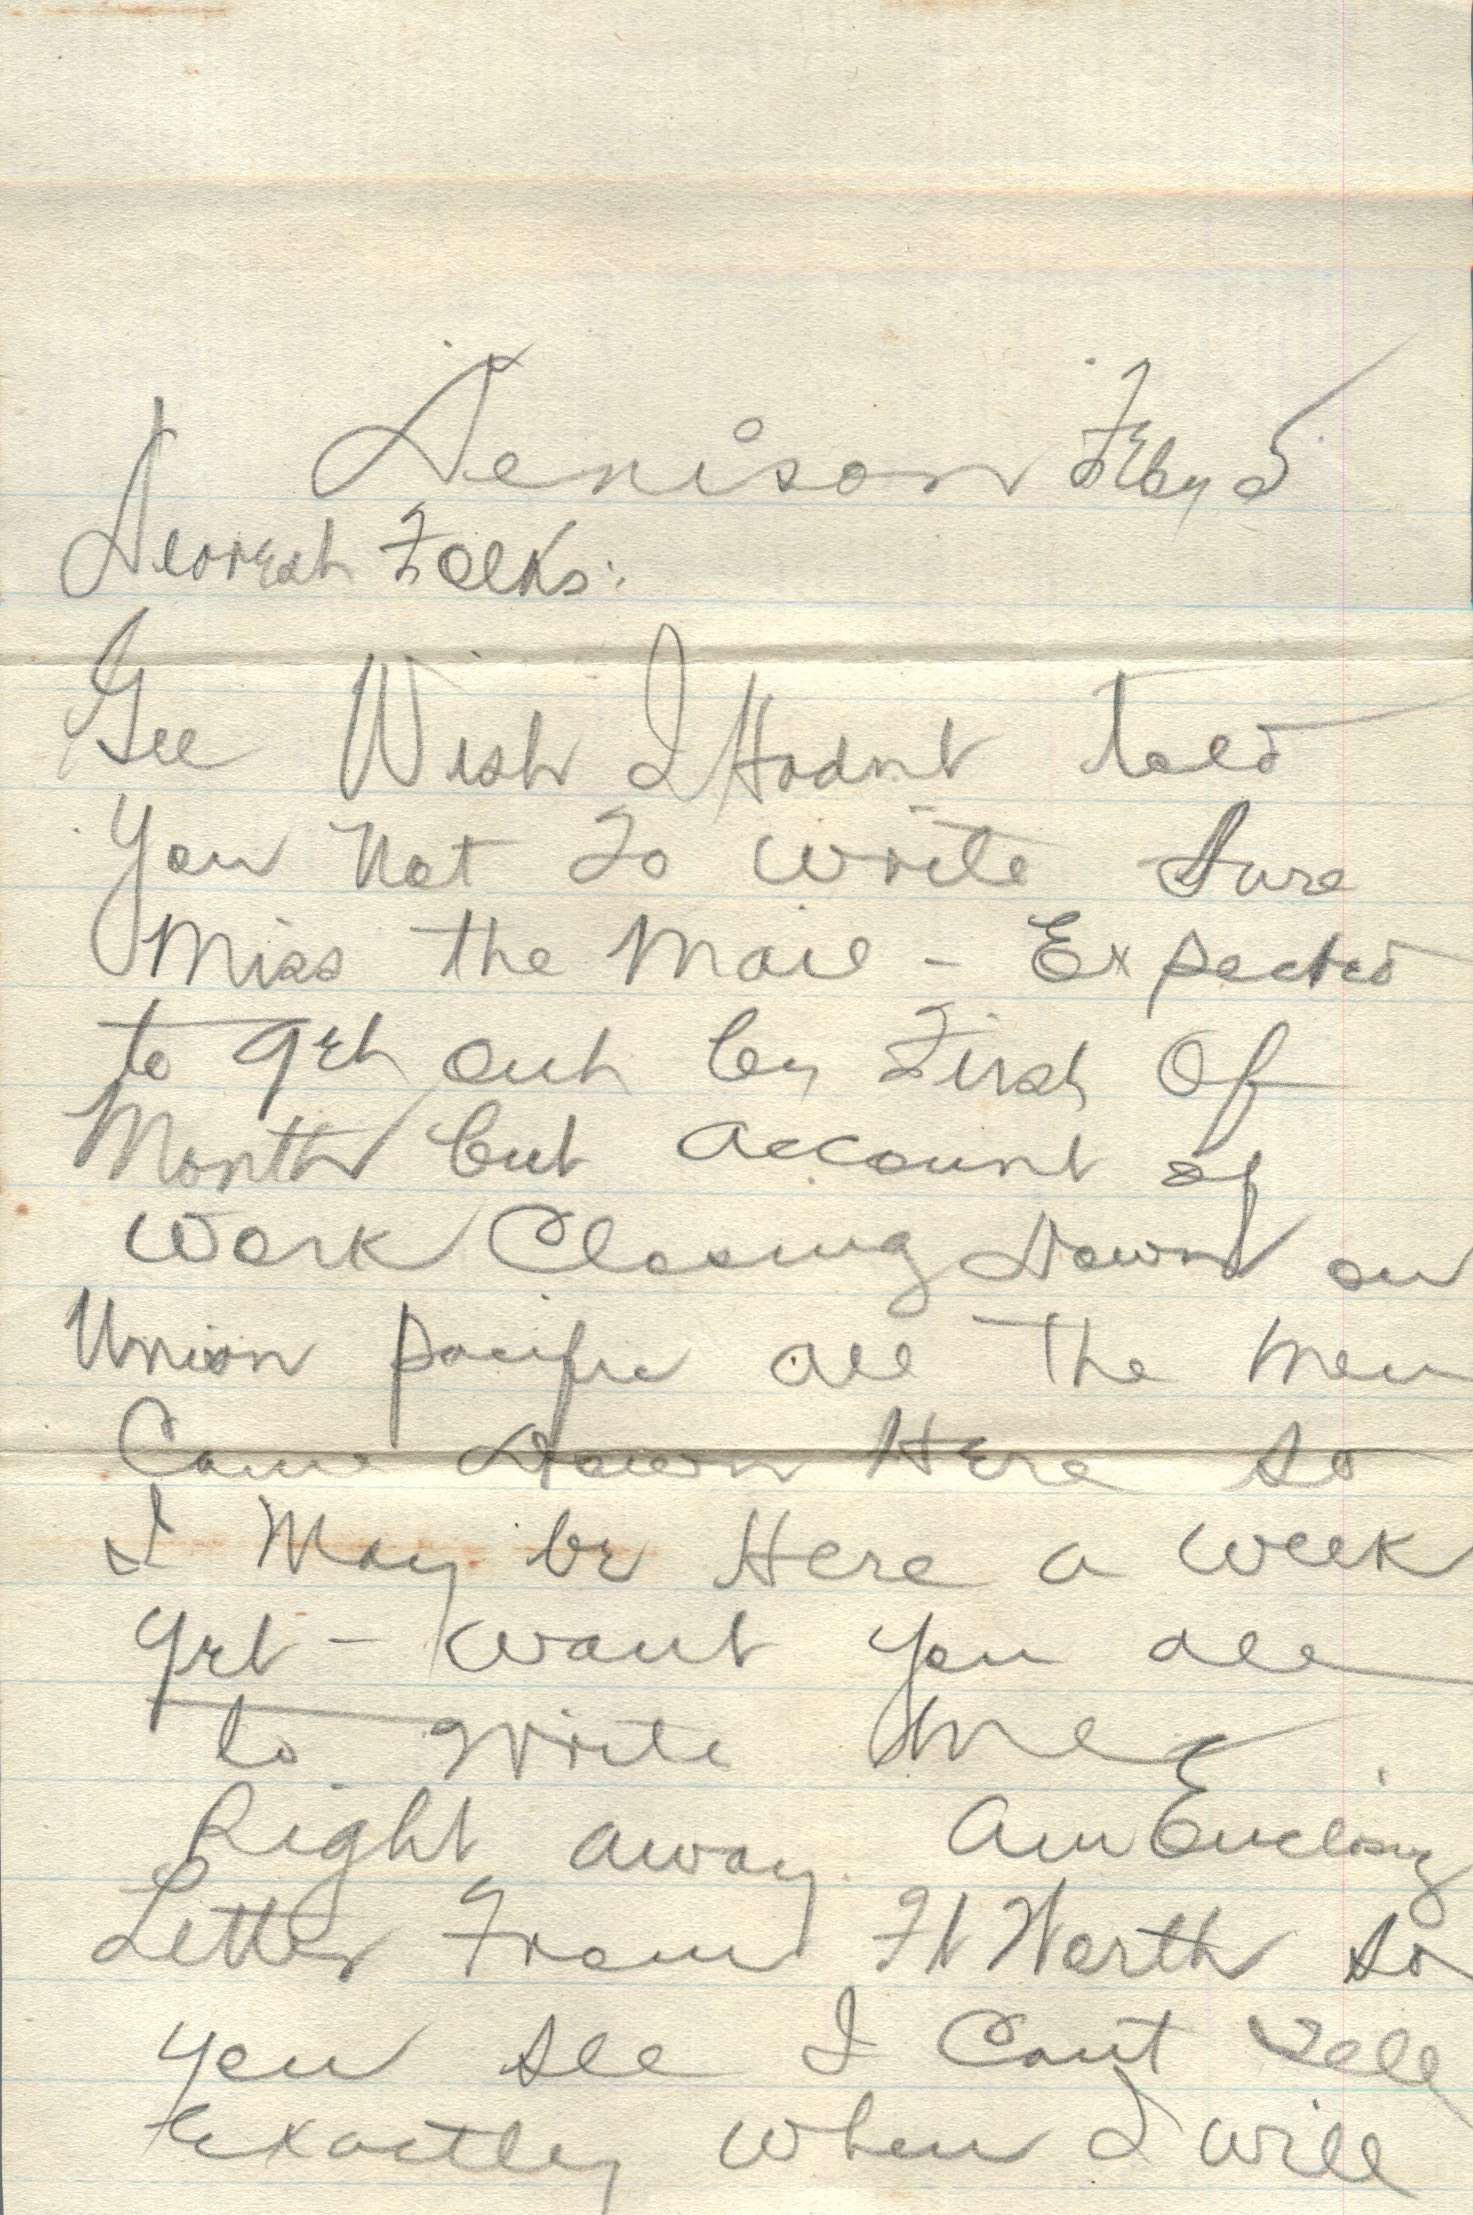 Denison Feby 5
Dearest Folks:
Gee Wish I Hadnt told
You Not To write Sure
Miss the Mail - Expected
to get out by First Of
Month but account of
Work Closing Down on
Union pacific all the Men
Came Down Here so
I May be Here a week
yet - want you all
to write Me
Right away. Am Enclosing
Letter From Ft Worth so
you see I Cant Tell
Exactly when I will